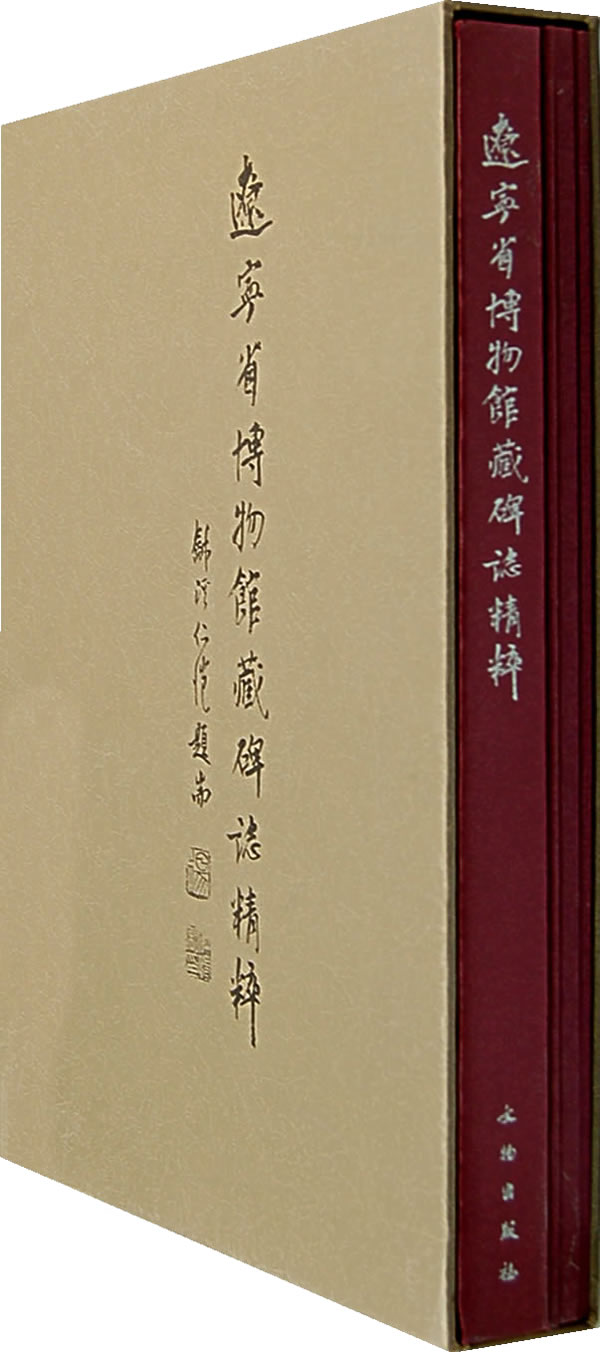 遼寧省博物館藏碑誌精粹
仁愷題耑
遼寧省博物館藏碑誌精粹
文物出版社